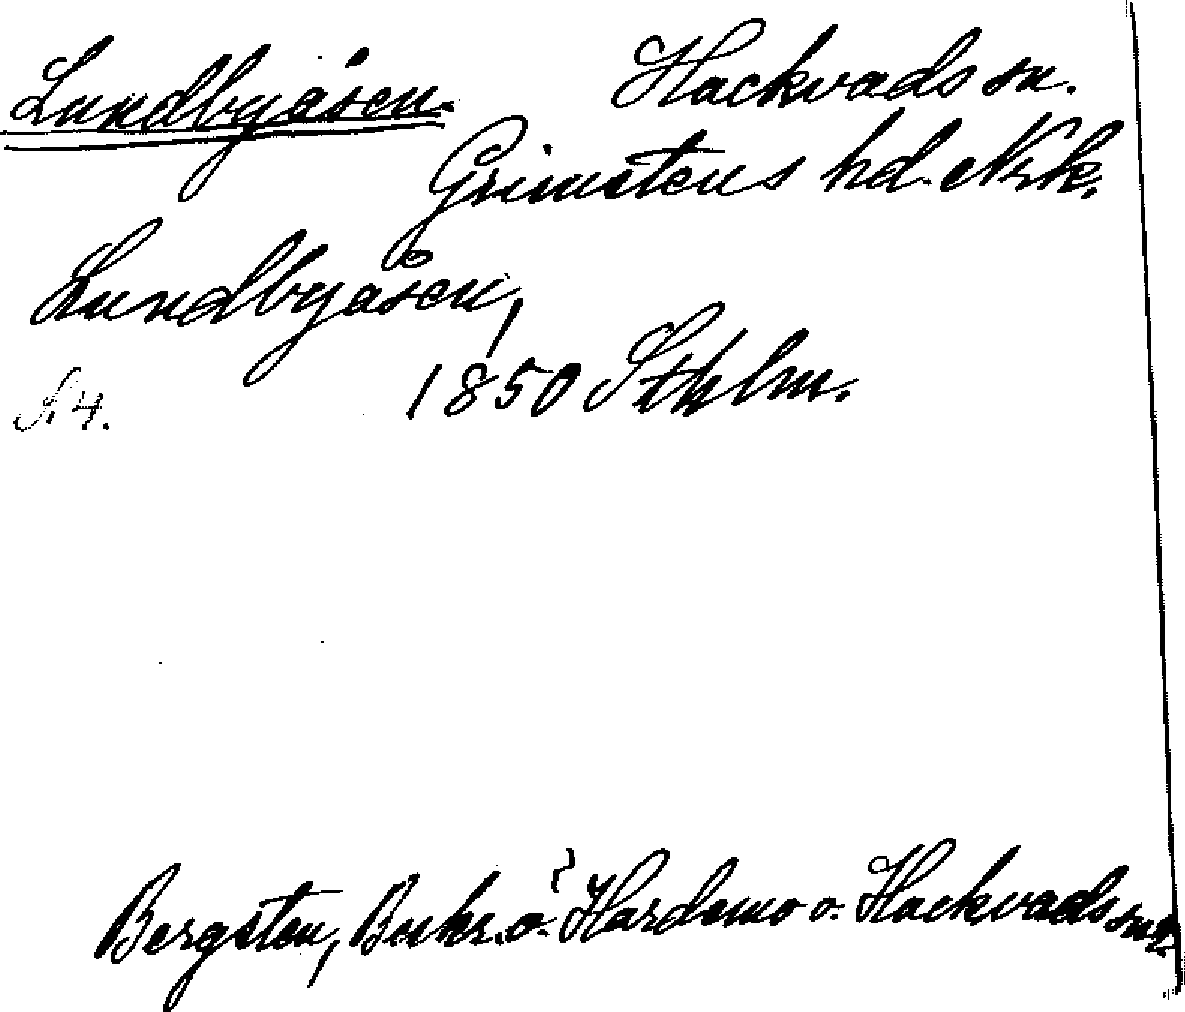 Lundbyåsen. Hackvads sn.
Grimstens hd. Nrk.
Lundbyåsen,
1850 Sthlm.
S. 4.
Bergsten, Beskr. ö. Hardemo o. Hackvads snr.